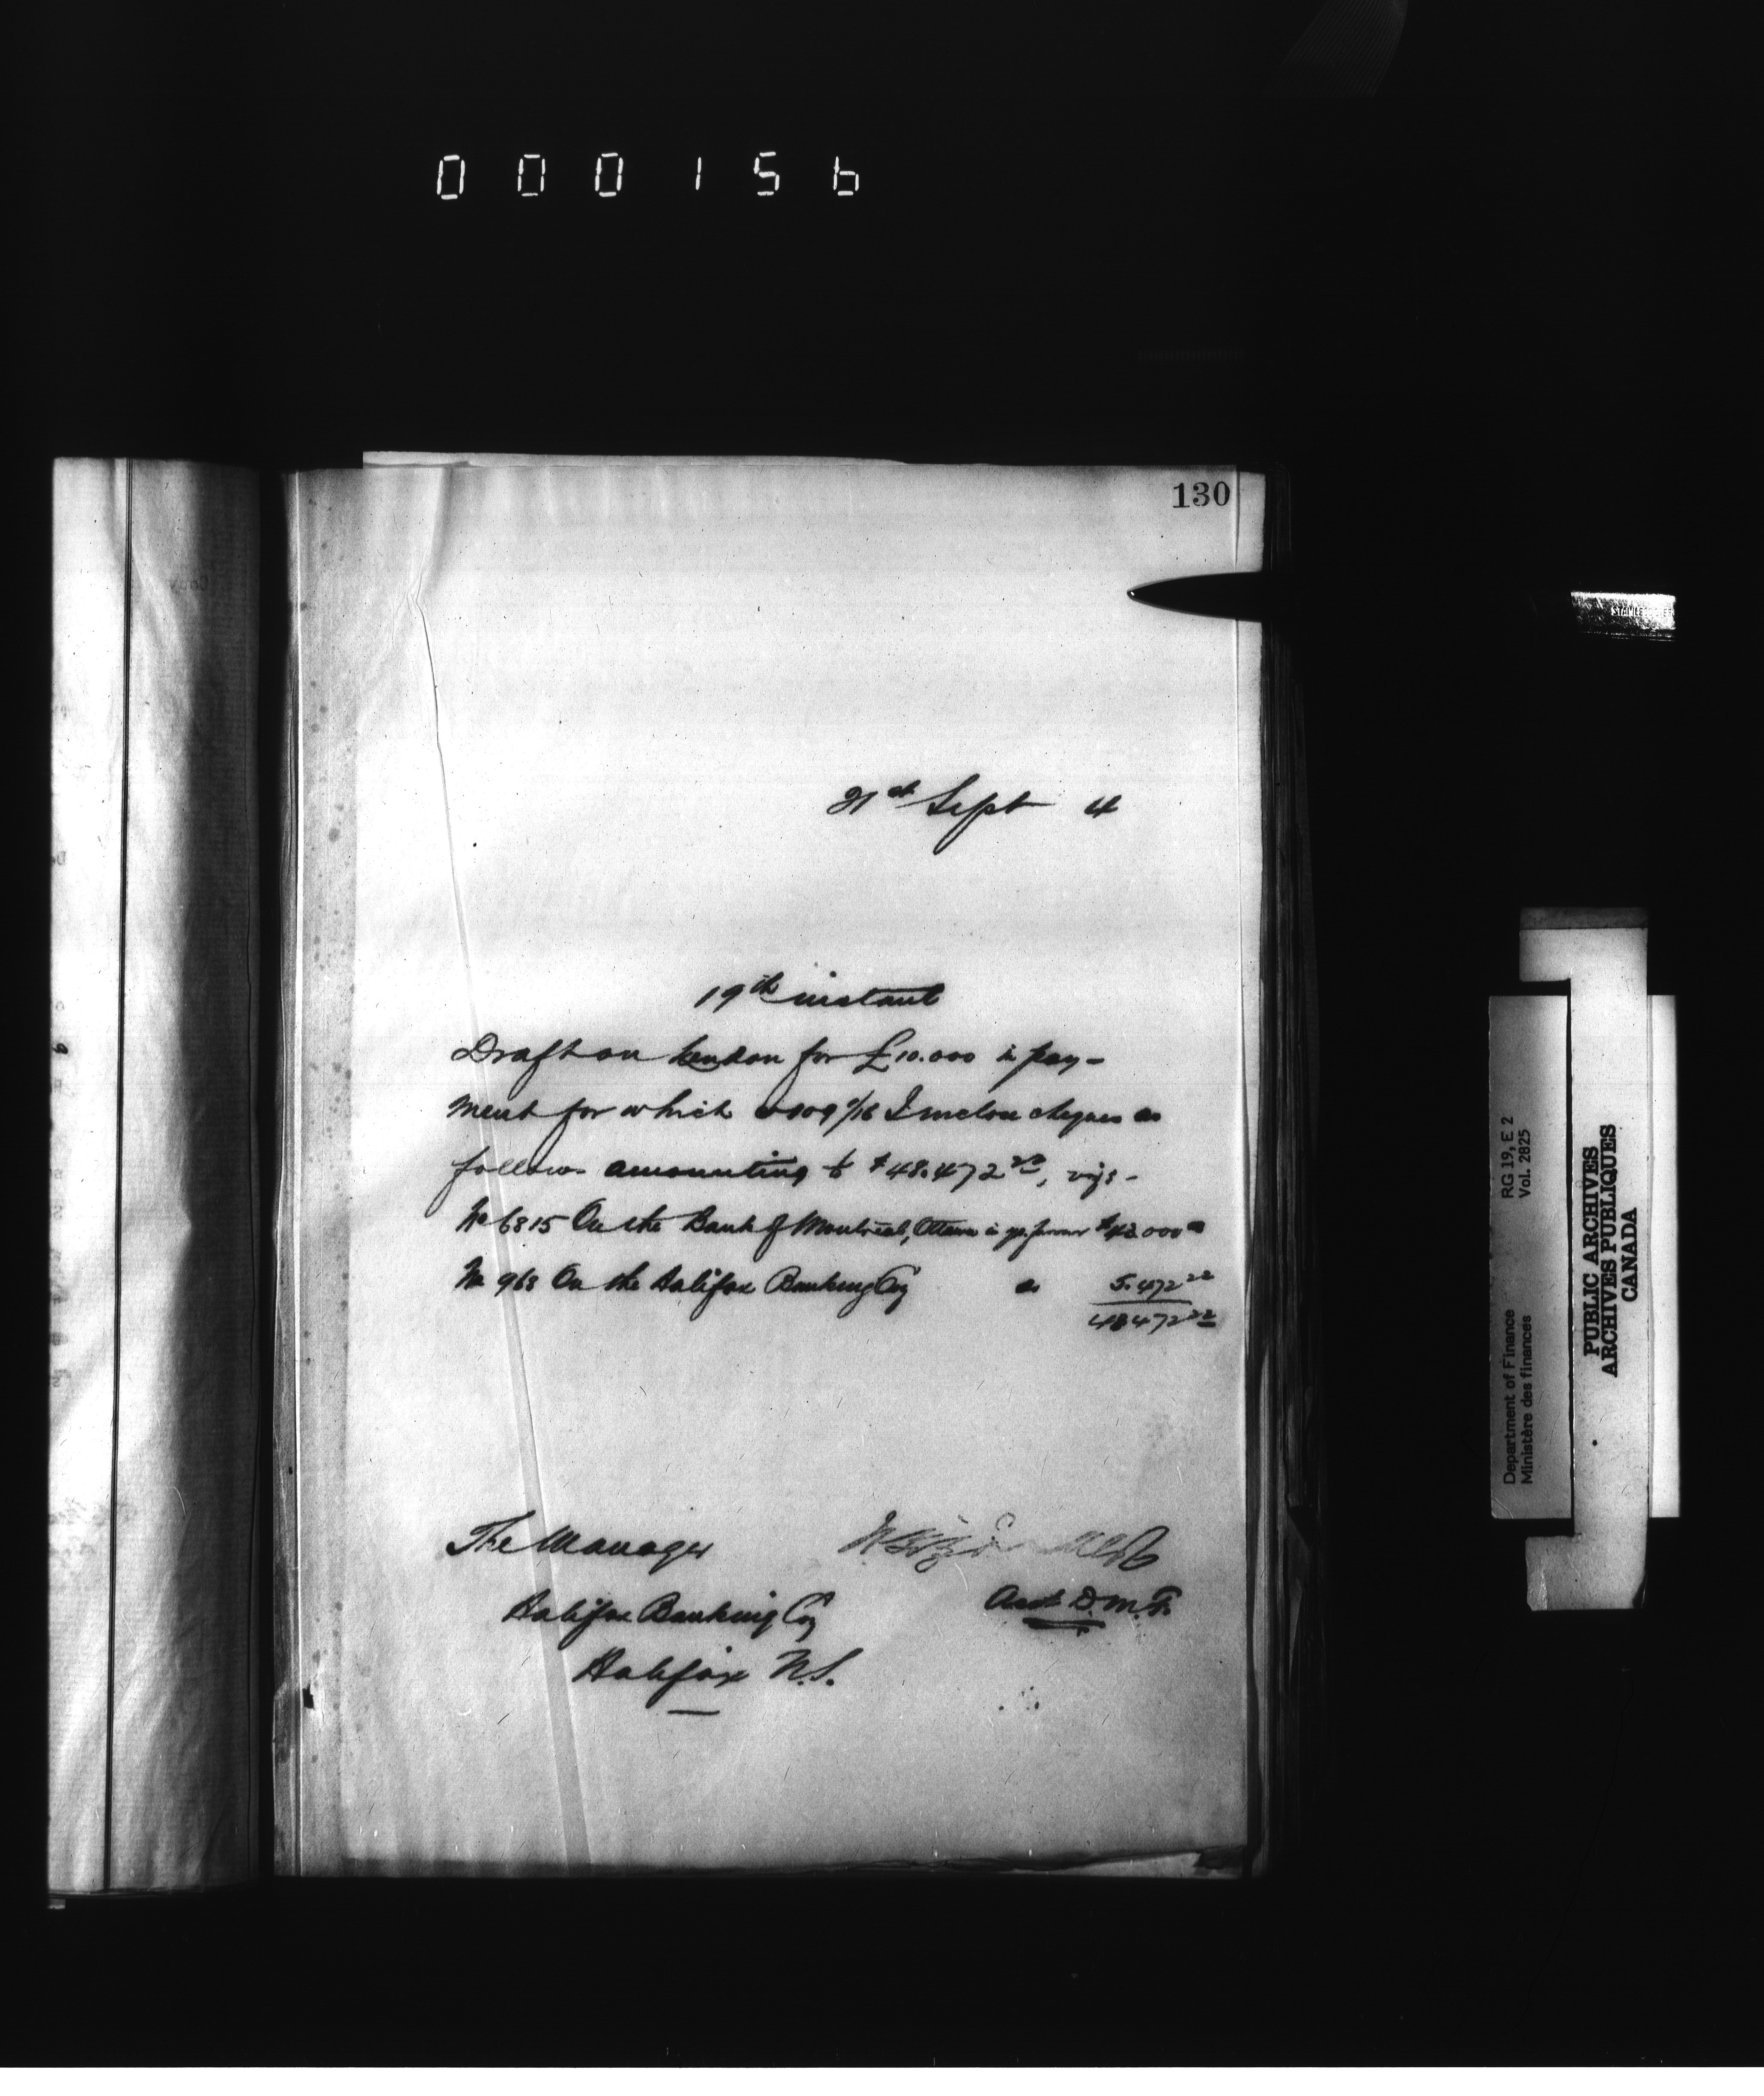 000156
130
21st Sept 4
19th instant
Draft on London for £10.000 in pay-
ment for which @ 109 1/16 I enclose cheques as
follows amounting to $48.472 22, viz: -
No 6815 On the Bank of Montreal, Ottawa in yr. favour $43.000 00
No 968 On the Halifax Banking Coy 5.472 22
48472 22
The Manager
Asst D.M.F.
Halifax Banking Coy
Halifax N.S.
STAINLESS STEEL
Department of Finance RG 19, E 2
Ministère des finances Vol. 2825
PUBLIC ARCHIVES
ARCHIVES PUBLIQUES
CANADA